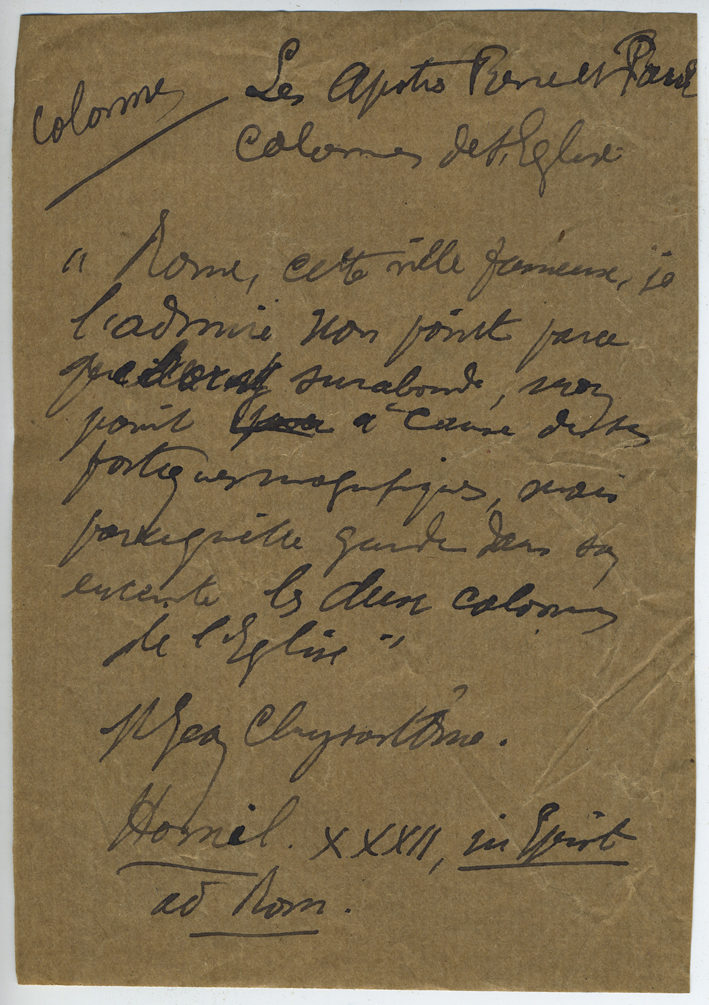 colonnes
Les Apotres Pierre et Paul
colonnes de l'Eglise
" Rome, cette ville fameuse, je
l'admire non point parce
que surabonde, non
point à cause de ses
portiques magnifiques, mais
parce qu'elle garde dans son
enceinte les deux colonnes
de l'Eglise "
St Jean Chrysostôme.
Homil. XXXII, in Epist
ad Rom.